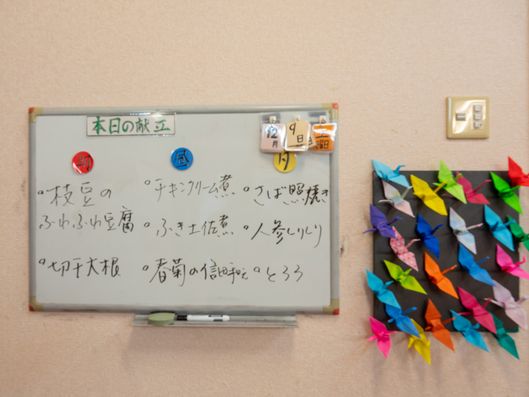 本日の献立
12月
9日
土曜日
朝
昼
夕
・枝豆の
ふわふわ豆腐
・切干大根
・チキンクリーム煮
・ふき土佐煮
・春菊の信田和え
・さば照焼き
・人参しりしり
・とろろ